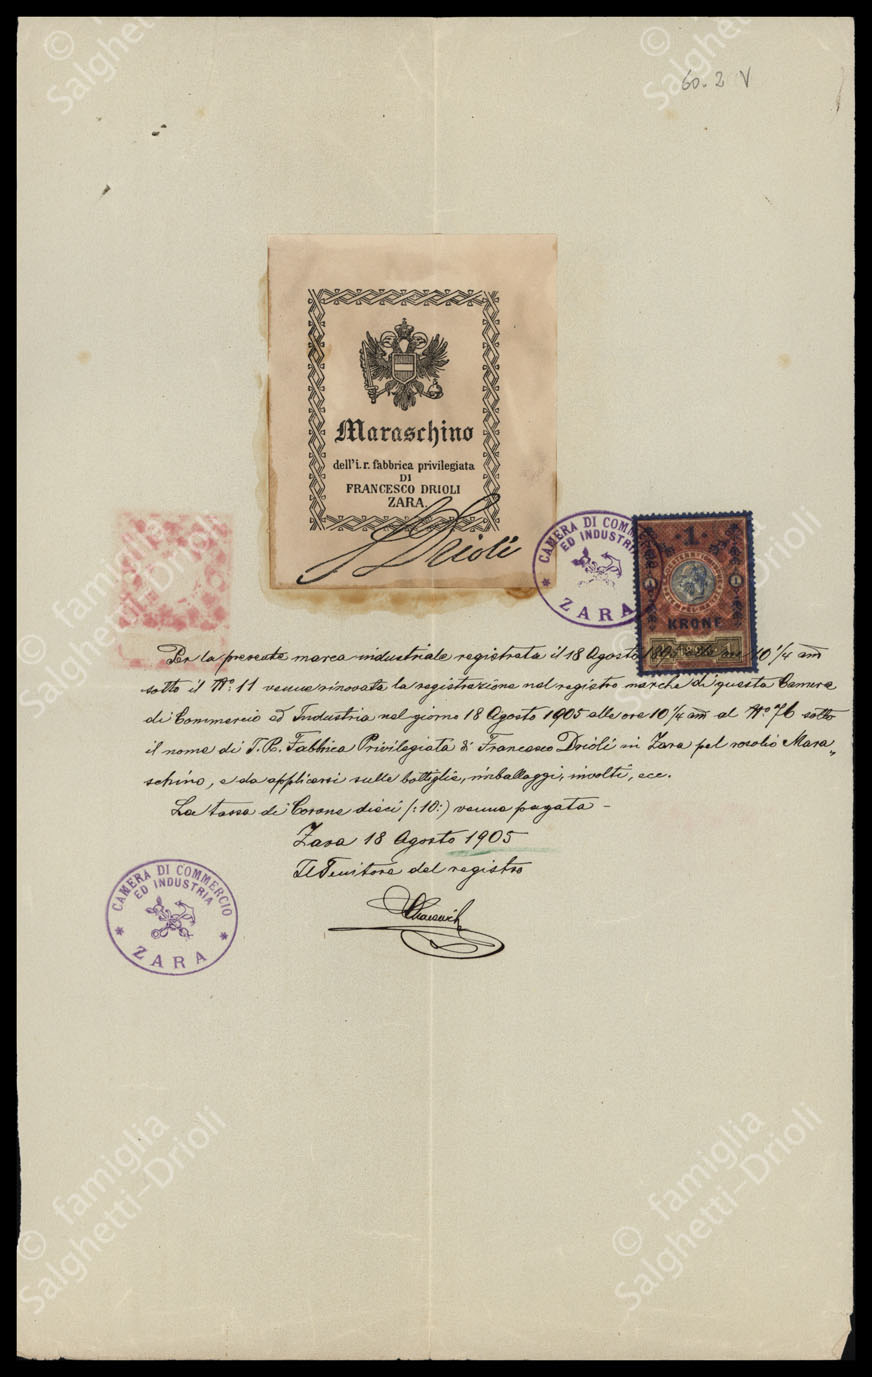 © famiglia
Salghetti-Drioli
© famiglia
Salghetti-Drioli
60. 2 V
Maraschino
dell'i. r. fabbrica privilegiata
DI
FRANCESCO DRIOLI
ZARA.
Drioli
CAMERA DI COMM
ED INDUSTRI
ZARA
1
1 1
KRONE
© famiglia
Salghetti-Drioli
Per la presente marca industriale registrata il 18 Agosto 1895 alle ore 10 1/4 am
sotto il No: 11 venne rinovata la registrazione nel registro marche di questa Camera
di Commercio ed Industria nel giorno 18 Agosto 1905 alle ore 10 1/4 am al No 76 sotto
il nome di I. R. Fabbrica Privilegiata di Francesco Drioli in Zara pel rosolio Mara„
schino, e da applicarsi sulle bottiglie, imballaggi, involti, ecc.
La tassa di Corone dieci (:10:) venne pagata –
Zara 18 Agosto 1905
Il Tenitore del registro
CAMERA DI COMMERCIO
ED INDUSTRIA
ZARA
© famiglia
Salghetti-Drioli
© famiglia
Salghetti-Drioli